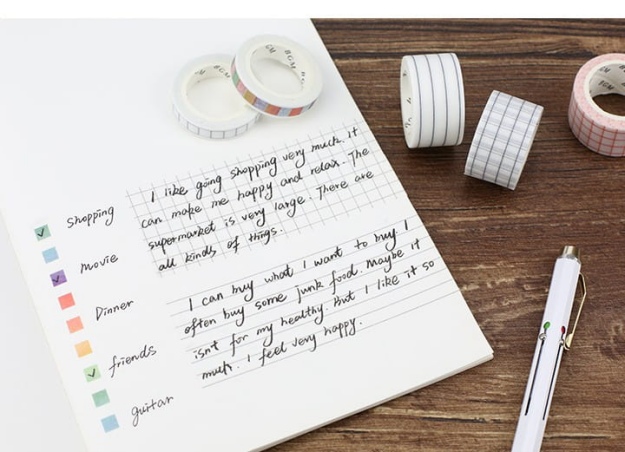 BGM
BGM
I like going shopping very much. It
can make me happy and relax. The
supermarket is very large. There are
all kinds of things.
I can buy what I want to buy I
often buy some junk food. Maybe it
isn't for my healthy. But I like it so
much. I feel very happy.
shopping
movie
Dinner
friends
guitar